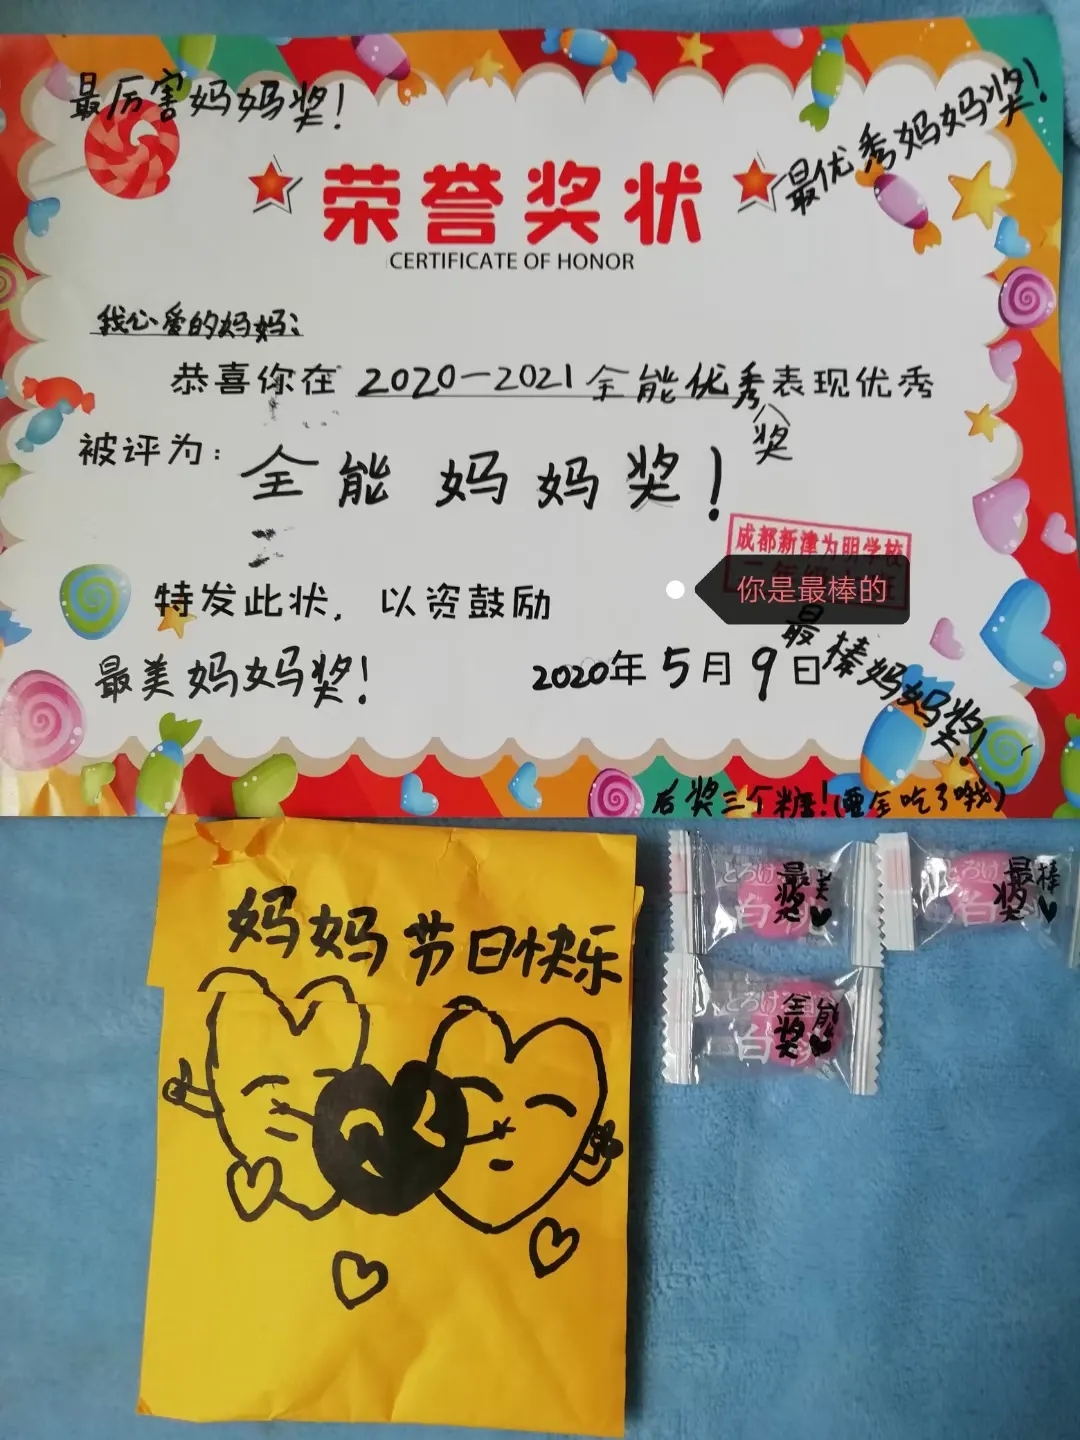 最厉害妈妈奖！
最优秀妈妈奖！
荣誉奖状
CERTIFICATE OF HONOR
我心爱的妈妈：
恭喜你在 2020—2021 全能优秀奖表现优秀
被评为：全能妈妈奖！
成都新津为明学校
你是最棒的
特发此状，以资鼓励
最美妈妈奖！
2020年5月9日
最棒妈妈奖！
后奖三个糖！(要全吃了哦)
妈妈节日快乐
最美
奖
白桃
最棒
奖
白
全能
奖
白桃